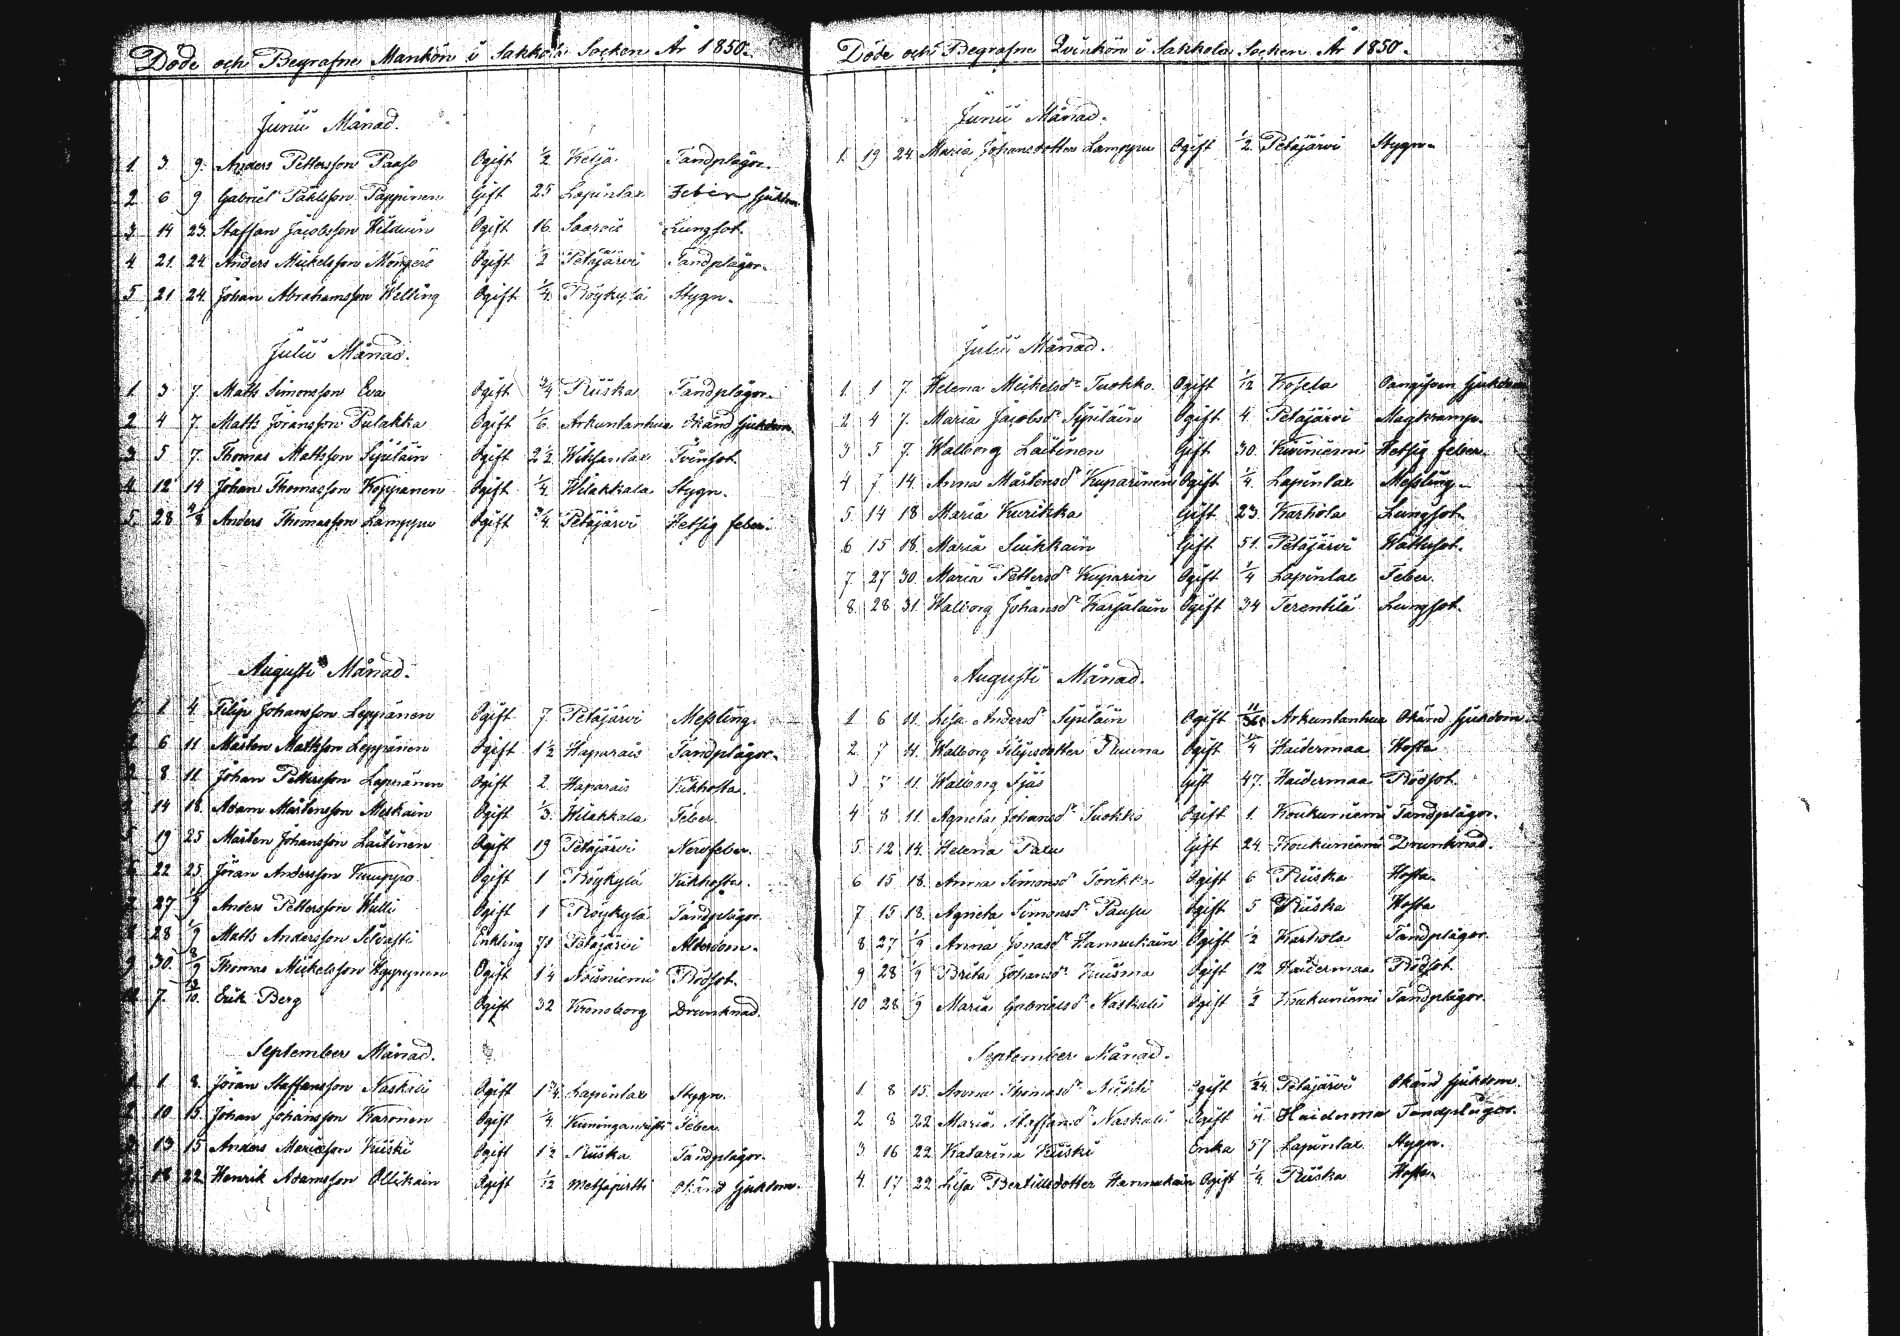 Döde och Begrafne Mankön i Sakkola Socken År 1850.
Junii Månad.
1 3 9. Anders Pettersson Paaso Ogift ½ Ketja Tandplågor.
2 6 9 Gabriel Påhlsson Pappinen Gift 25 Lapinlax Feber sjukdom
3 14 23. Staffan Jacobsson Hilduin Ogift 16. Saarois Lungsot.
4 21. 24 Anders Mickelsson Ogift ½ Petäjärvi Tandplågor.
5 21 24. Johan Abrahamsson Welling Ogift ¼ Röykylä Stygn.
Julii Månad.
1 3 7. Matts Simonsson Eva Ogift ¾ Riiska Tandplågor.
2 4 7. Matts Jöransson Pulakka Ogift 1/6. Arkuntanhua Okänd sjukdom.
3 5 7. Thomas Mattsson Sipiläin Ogift 2½ Tvinsot.
4 12 14 Johan Thomasson Koppanen Ogift ¼ Wilakkala Stygn.
5. 28 4/8 Anders Thomasson Lamppu Ogift ¾ Petäjärvi Hetsig feber.
Augusti Månad.
1 4 Filip Johansson Leppänen Ogift 7. Petäjärvi Messling.
2 6 11 Mårten Mattsson Leppänen Ogift 1½ Haparais Tandplågor.
3 8 11 Johan Pettersson Leppänen Ogift 2. Haparais Kikhosta.
4 14 18. Adam Mårtensson Meskain Ogift ⅓. Wilakkala Feber.
5 19 25 Mårten Johansson Laitinen Ogift 19 Petäjärvi Nervfeber.
6 22 25 Jöran Andersson Kauppo Ogift 1 Röykylä Kikhosta.
7 27 1/9 Anders Pettersson Wälli Ogift 1 Röykylä Tandplågor.
8 28 1/9 Matts Andersson Silvasti Enkling 71 Petäjärvi Ålderdom.
9 30. 8/9 Thomas Mickelsson Hyyrynen Ogift 14 Noisniemi Rödsot.
10 7. 13/10. Erik Berg Ogift 32 Kronoborg Drunknad.
September Månad.
1 1 8. Jöran Staffansson Naskali Ogift 1¾ Lapinlax Stygn.
2 10 15. Johan Johansson Karonen Ogift ¼. Kuninganristi Feber.
3 13 15 Anders Mariæson Kiiski Ogift 1½ Riiska Tandplågor.
4 18 22 Henrik Adamsson Ollikain Ogift 1/12 Metsäpirtti Okänd sjukdom.
Döde och Begrafne Qvinkön i Sakkola Socken År 1850.
Junii Månad.
1. 19 24. Maria Johansdotter Lamppu Ogift ½. Petäjärvi Stygn.
Julii Månad.
1. 1 7. Helena Mickelsdr Tuokko Ogift 1/12 Kosela Oangifven sjukdom
2 4 7. Maria Jacobsdr Sipiläin Ogift 4. Petäjärvi Magkramp.
3 5 7. Walborg Laitinen Gift 30. Kiviniemi Hetsig feber.
4 7 14. Anna Mårtensdr Kuparinen Ogift ¼. Lapinlax Messling.
5. 14 18 Maria Kurikka Gift 23. Karhola Lungsot.
6 15 18. Maria Suikkain Gift 51. Petäjärvi Wattusot.
7. 27 30. Maria Pettersdr Kuparin Ogift ¼ Lapinlax Feber.
8. 28 31. Walborg Johansdr Karjalain Ogift 34 Terentilä Lungsot.
Augusti Månad.
1 6 11. Lisa Andersdr Sipiläin Ogift 11/365 Arkuntanhua Okänd sjukdom.
2. 7 11. Walborg Filipsdotter Ruuna Ogift ¾ Haidermaa Hosta
3 7 11. Walborg Gift 47. Haidermaa Rödsot.
4 8 11. Agneta Johansdr Tuokko Ogift 1. Koukuniemi Tandplågor.
5 12 14. Helena Paxu Gift 24. Koukuniemi Drunknad.
6 15 18. Anna Simonsd Torikka Ogift 6 Riiska Hosta.
7 15 18. Agneta Simonsd Pausu Ogift 5 Riiska Hosta
8 27 1/9 Anna Jonasdr Hannukain Ogift ½ Karhola Tandplågor.
9 28 1/9 Brita Johansdr Kuisma Ogift 12 Haidermaa Rödsot.
10 28 1/9 Maria Gabrielsdr Naskali Ogift ½ Koukuniemi Tandplågor.
September Månad.
1 8 15. Anna Thomasdr Ogift 1/24. Petäjärvi Okänd sjukdom.
2 8 22 Maria Staffansdr Naskali Ogift Haiderma Tandplågor.
3. 16 22 Katarina Kiiski Enka 57 Lapinlax Stygn.
4. 17 22 Lisa Bertilsdotter Hannukain Ogift ¼. Riiska Hosta.